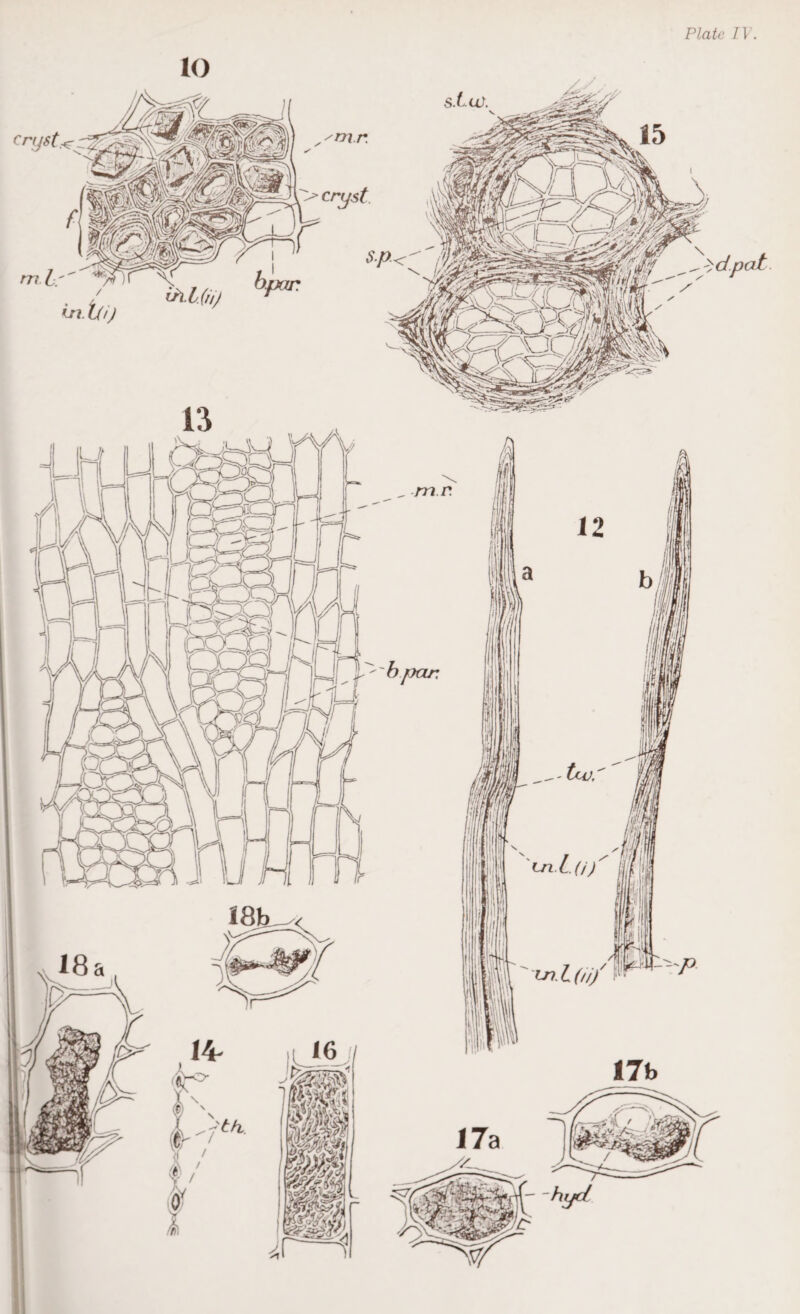 Plate IV.
10
cryst.
m.r.
cryst.
f
m.l.
in.l.(i)
in.l.(ii)
b.par.
s.t.w.
15
s.p.
d.pat.
13
m.r.
b.par.
12
a
b
tw.
in.l.(i)
in.l.(ii)
p.
18a
18b
14
th.
16
17a
17b
hyd.